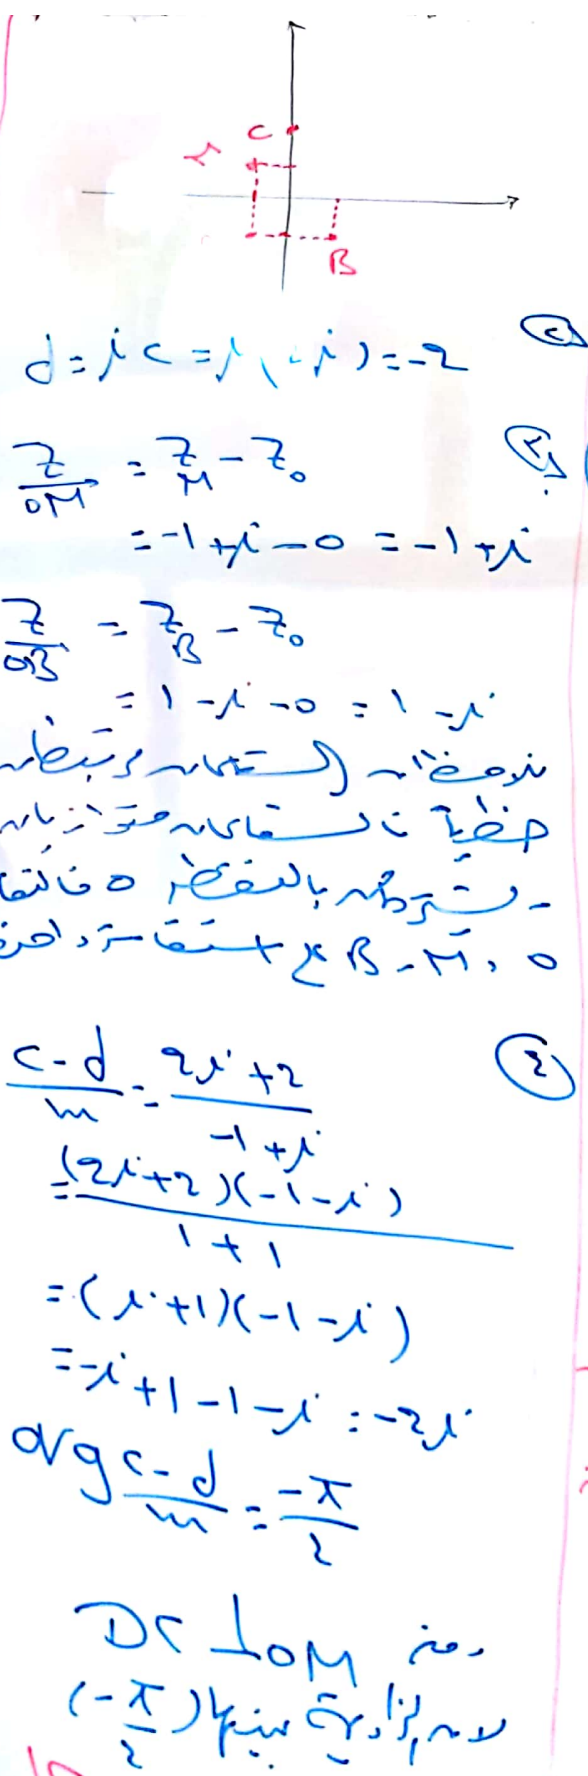 C
M
B
② d = ic = i(2i) = -2
③ Z_OM = Z_M - Z_0
= -1+i-0 = -1+i
Z_OB = Z_B - Z_0
= 1-i-0 = 1-i
نلاحظ أن الشعاعان مرتبطان
خطياً فالشعاعان متوازيان
بالنقطة O فالنقا
O, M, B على استقامة واحدة
④ (c-d)/m = (2i+2)/(-1+i)
= (2i+2)(-1-i)/(1+1)
= (i+1)(-1-i)
= -i+1-1-i = -2i
arg (c-d)/m = -π/2
ومنه DC ⊥ OM
لأن الزاوية بينهما (-π/2)